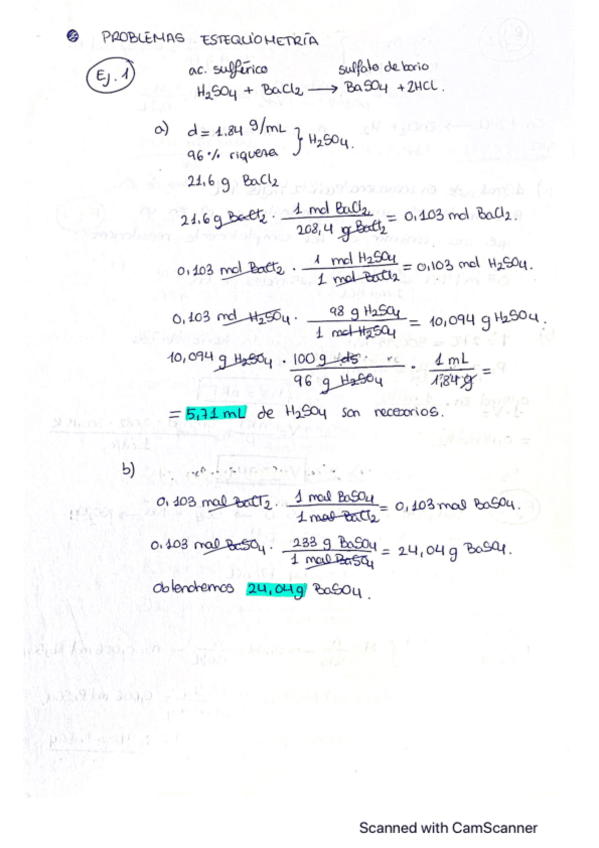 PROBLEMAS ESTEQUIOMETRÍA
Ej. 1
ac. sulfúrico sulfato de bario
H2SO4 + BaCl2 → BaSO4 + 2HCl.
a) d = 1.84 g/mL } H2SO4.
96% riqueza
21,6 g BaCl2
21,6 g BaCl2 · 1 mol BaCl2 / 208,4 g BaCl2 = 0,103 mol BaCl2.
0,103 mol BaCl2 · 1 mol H2SO4 / 1 mol BaCl2 = 0,103 mol H2SO4.
0,103 mol H2SO4 · 98 g H2SO4 / 1 mol H2SO4 = 10,094 g H2SO4.
10,094 g H2SO4 · 100 g / 96 g H2SO4 · 1 mL / 1,84 g =
= 5,71 mL de H2SO4 son necesarios.
b)
0,103 mol BaCl2 · 1 mol BaSO4 / 1 mol BaCl2 = 0,103 mol BaSO4.
0,103 mol BaSO4 · 233 g BaSO4 / 1 mol BaSO4 = 24,04 g BaSO4.
obtendremos 24,04g BaSO4.
Scanned with CamScanner